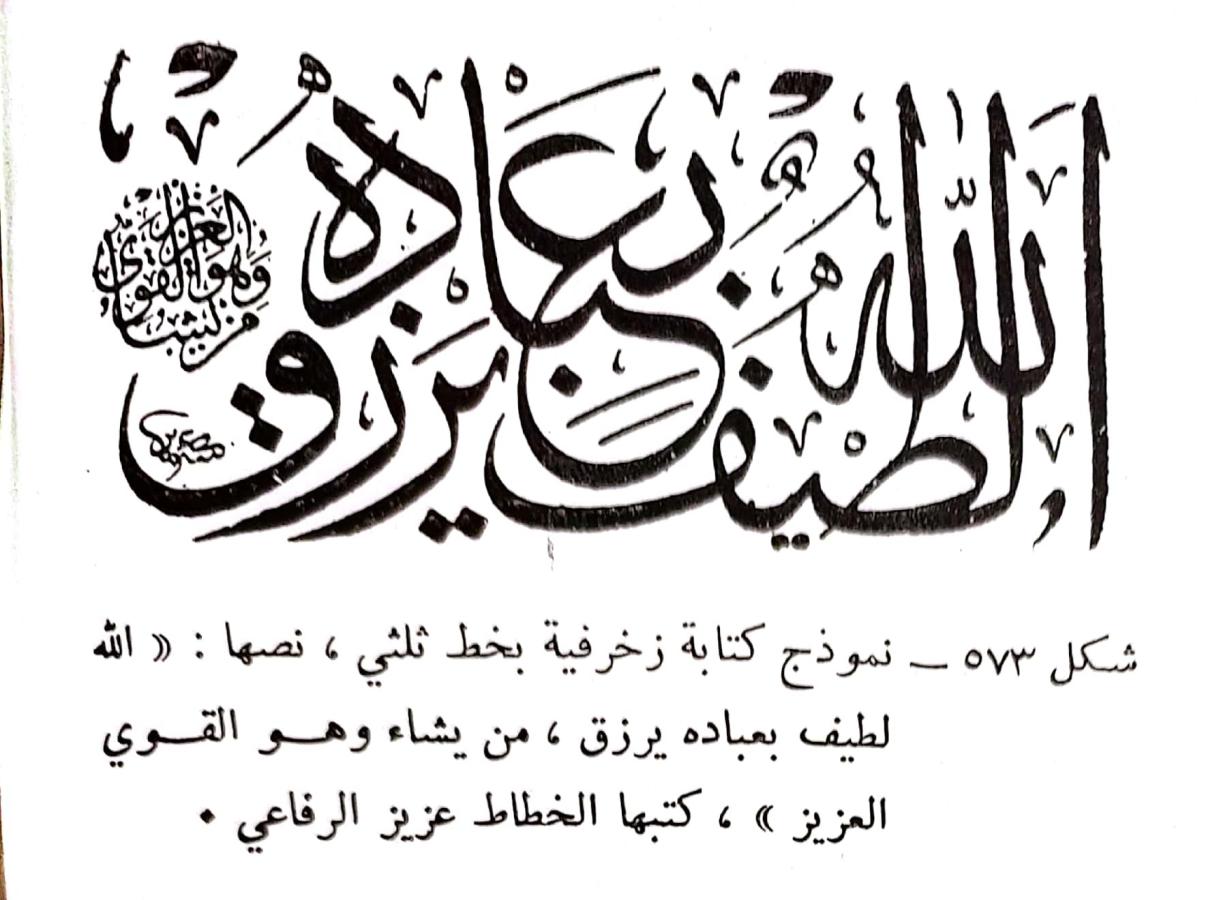 الله لطيف بعباده يرزق
من يشاء وهو القوي العزيز
شكل ٥٧٣ ــ نموذج كتابة زخرفية بخط ثلثي ، نصها : « الله
لطيف بعباده يرزق ، من يشاء وهــو القــوي
العزيز » ، كتبها الخطاط عزيز الرفاعي ٠